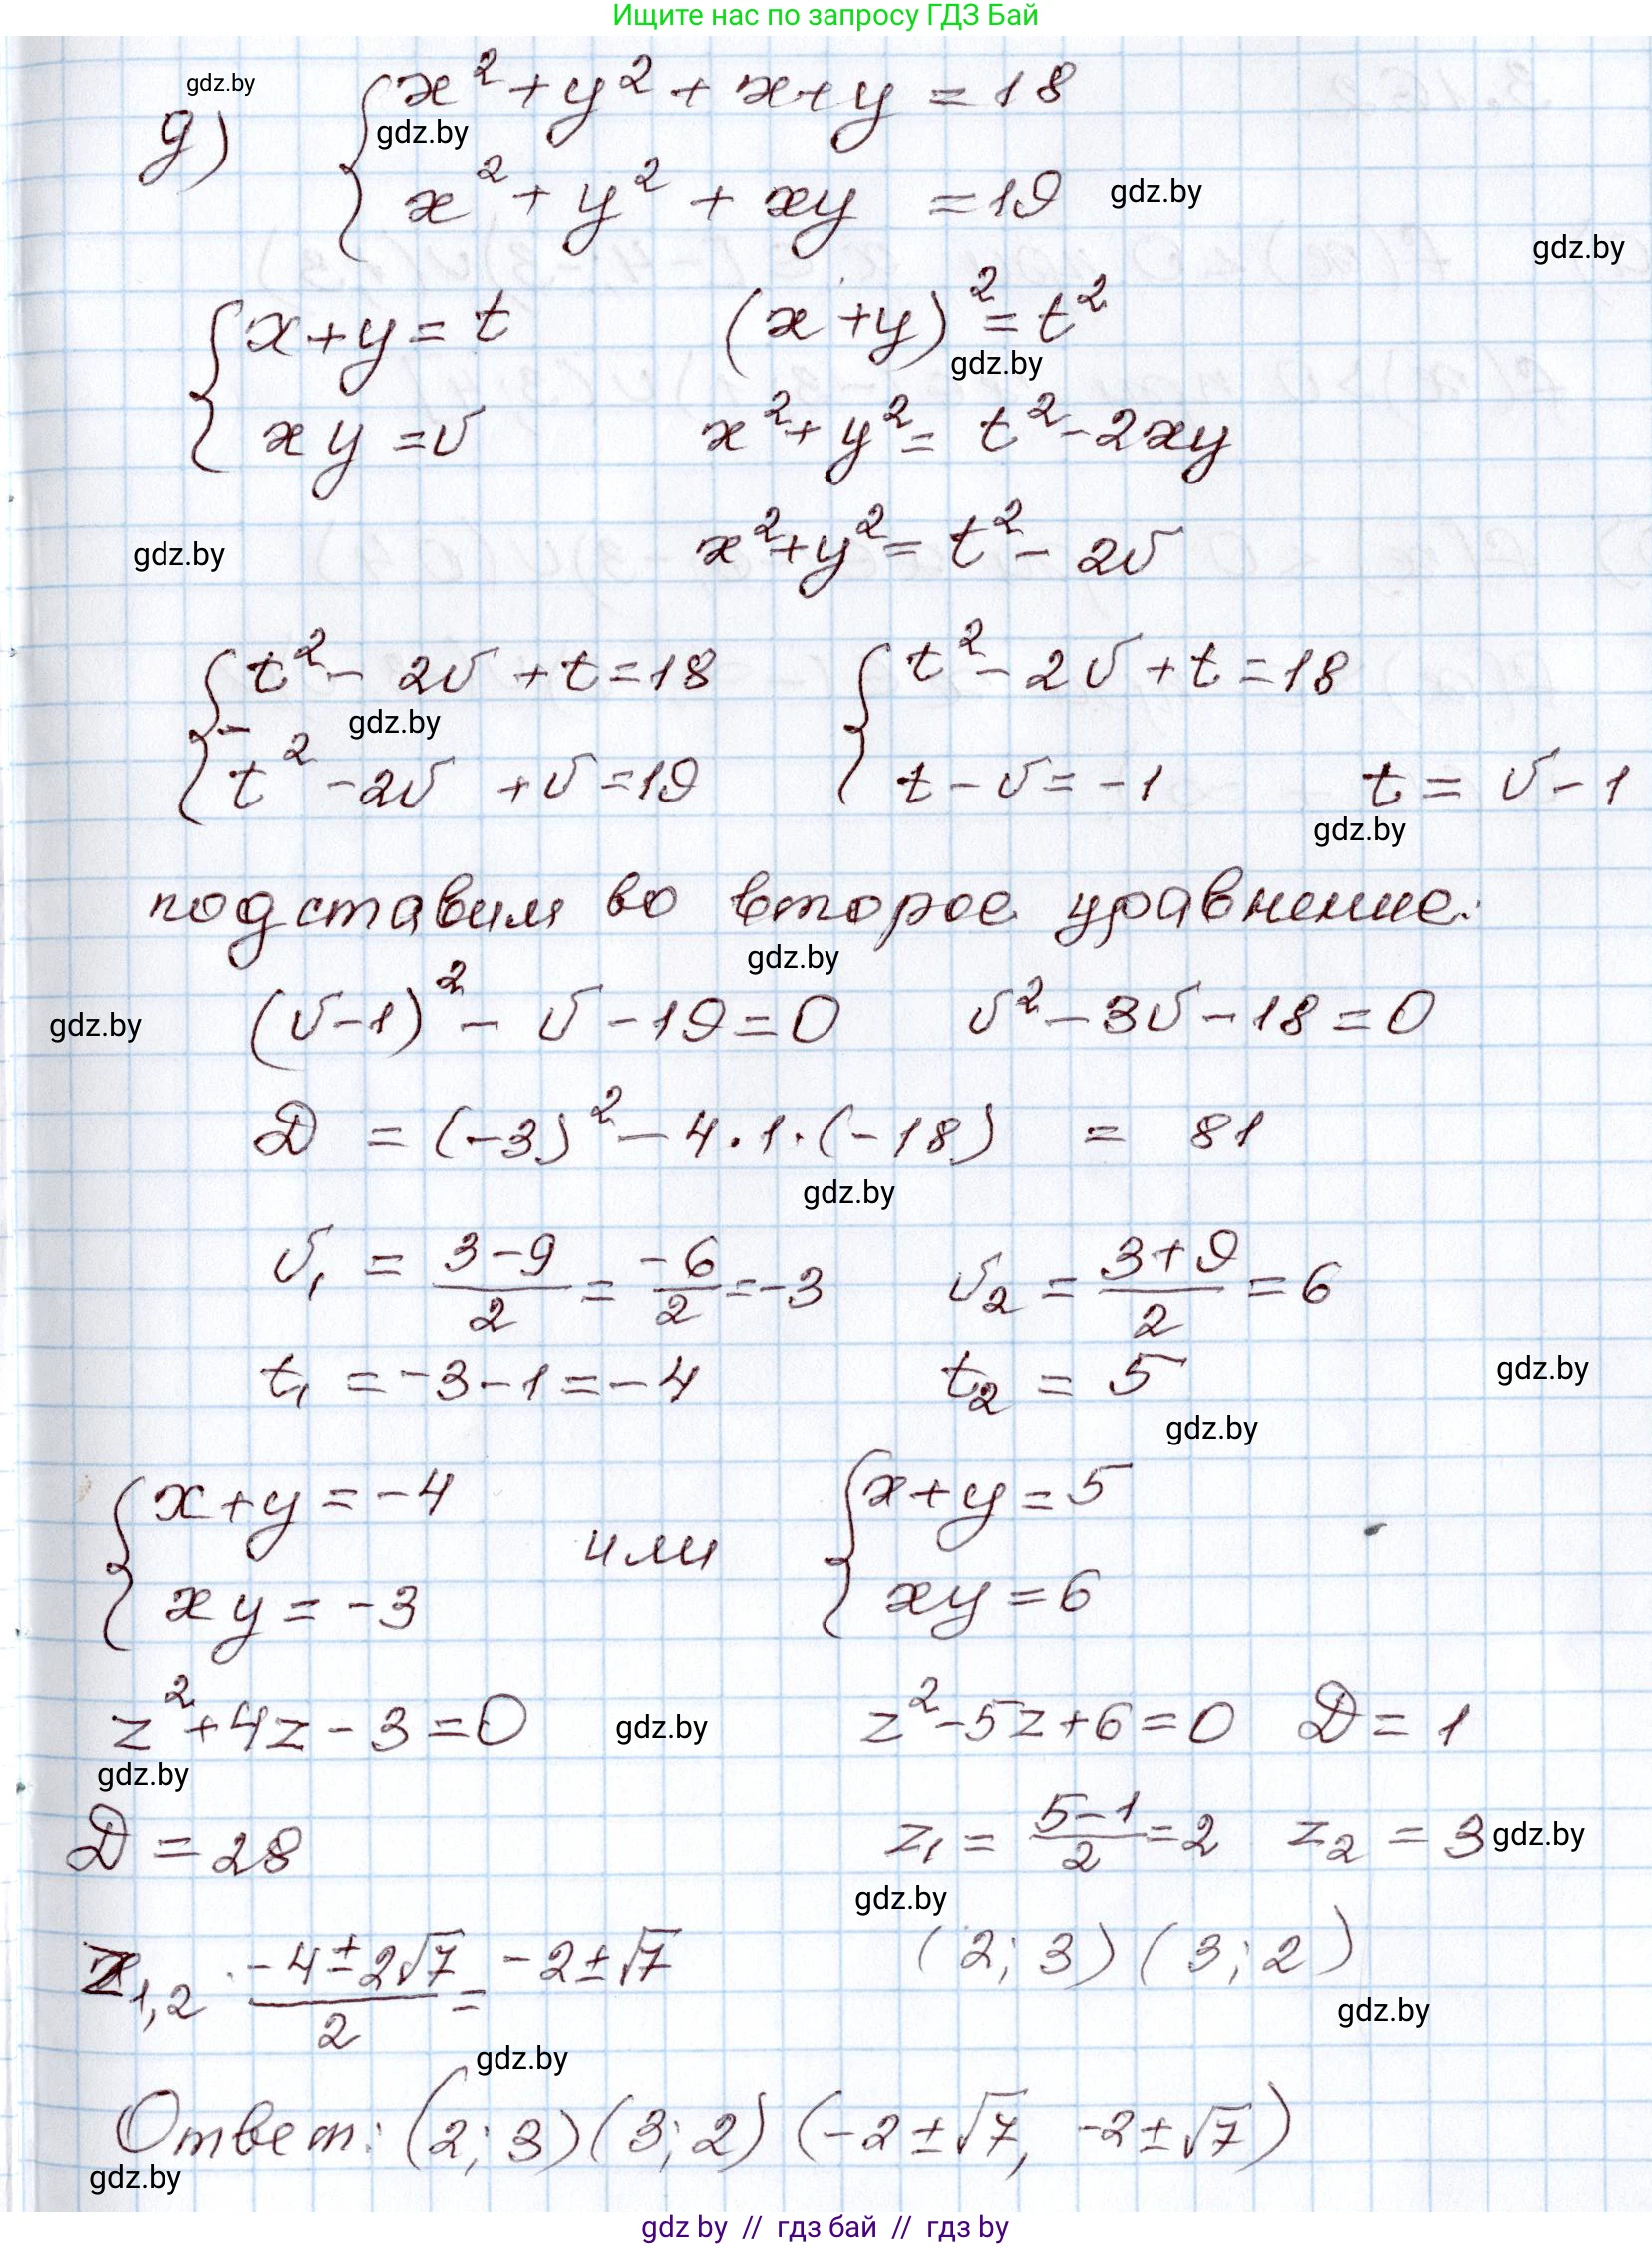 Ищите нас по запросу ГДЗ Бай
gdz.by
д) { x² + y² + x + y = 18
gdz.by
x² + y² + xy = 19 gdz.by
gdz.by
{ x + y = t (x + y)² = t²
gdz.by
xy = v x² + y² = t² - 2xy
gdz.by x² + y² = t² - 2v
{ t² - 2v + t = 18 { t² - 2v + t = 18
- gdz.by
t² - 2v + v = 19 t - v = -1 t = v - 1
gdz.by
подставим во второе уравнение:
gdz.by
gdz.by (v - 1)² - v - 19 = 0 v² - 3v - 18 = 0
D = (-3)² - 4·1·(-18) = 81
gdz.by
v₁ = (3-9)/2 = -6/2 = -3 v₂ = (3+9)/2 = 6
t₁ = -3 - 1 = -4 t₂ = 5 gdz.by
gdz.by
{ x + y = -4 или { x + y = 5
xy = -3 xy = 6
z² + 4z - 3 = 0 gdz.by z² - 5z + 6 = 0 D = 1
gdz.by
D = 28 z₁ = (5-1)/2 = 2 z₂ = 3 gdz.by
gdz.by
z₁,₂ (-4 ± 2√7)/2 = -2 ± √7 (2; 3) (3; 2)
gdz.by
gdz.by
Ответ: (2; 3) (3; 2) (-2 ± √7, -2 ± √7)
gdz.by
gdz by // гдз бай // гдз by